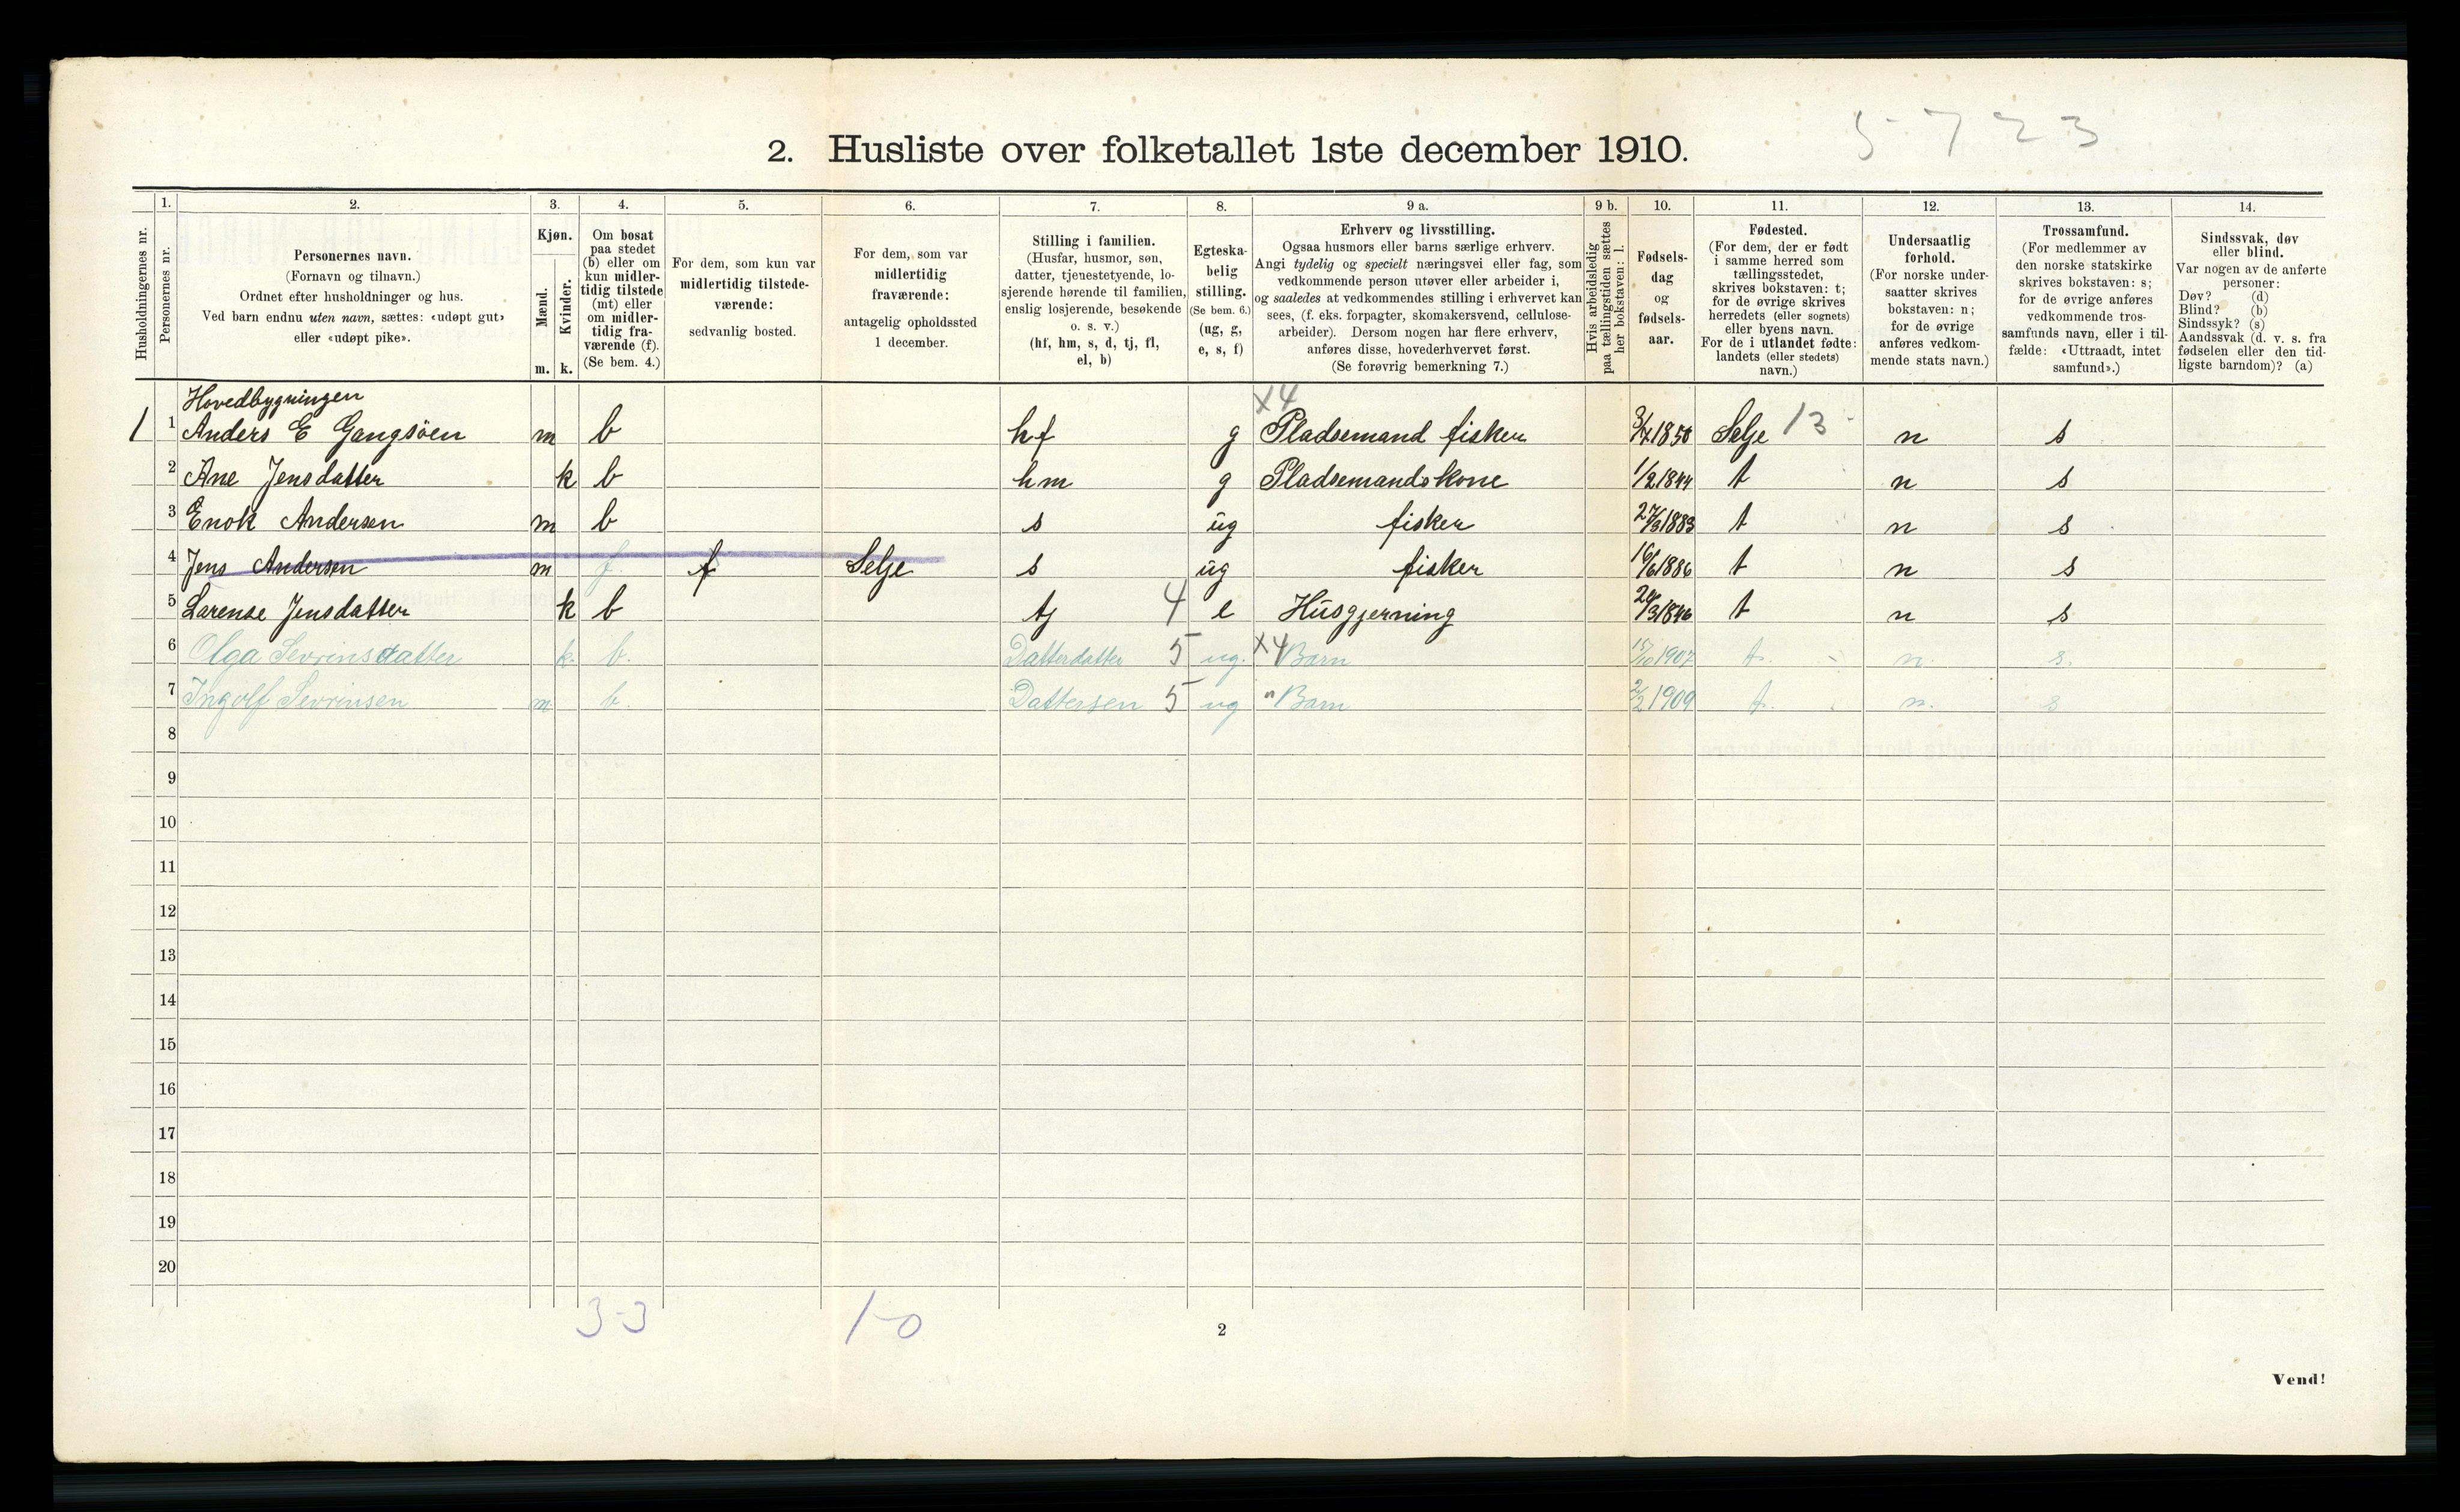 5723
2. Husliste over folketallet 1ste december 1910.
Husholdningernes nr.
1.
Personernes nr.
2.
Personernes navn.
(Fornavn og tilnavn.)
Ordnet efter husholdninger og hus.
Ved barn endnu uten navn, sættes: «udøpt gut»
eller «udøpt pike».
3.
Kjøn.
Mænd.
Kvinder.
m. k.
4.
Om bosat
paa stedet
(b) eller om
kun midler-
tidig tilstede
(mt) eller
om midler-
tidig fra-
værende (f).
(Se bem. 4.)
5.
For dem, som kun var
midlertidig tilstede-
værende:
sedvanlig bosted.
6.
For dem, som var
midlertidig
fraværende:
antagelig opholdssted
1 december.
7.
Stilling i familien.
(Husfar, husmor, søn,
datter, tjenestetyende, lo-
sjerende hørende til familien,
enslig losjerende, besøkende
o. s. v.)
(hf, hm, s, d, tj, fl,
el, b)
8.
Egteska-
belig
stilling.
(Se bem. 6.)
(ug, g,
e, s, f)
9 a.
Erhverv og livsstilling.
Ogsaa husmors eller barns særlige erhverv.
Angi tydelig og specielt næringsvei eller fag, som
vedkommende person utøver eller arbeider i,
og saaledes at vedkommendes stilling i erhvervet kan
sees, (f. eks. forpagter, skomakersvend, cellulose-
arbeider). Dersom nogen har flere erhverv,
anføres disse, hovederhvervet først.
(Se forøvrig bemerkning 7.)
9 b.
Hvis arbeidsledig
paa tællingstiden sættes
her bokstaven: l.
10.
Fødsels-
dag
og
fødsels-
aar.
11.
Fødested.
(For dem, der er født
i samme herred som
tællingsstedet,
skrives bokstaven: t;
for de øvrige skrives
herredets (eller sognets)
eller byens navn.
For de i utlandet fødte:
landets (eller stedets)
navn.)
12.
Undersaatlig
forhold.
(For norske under-
saatter skrives
bokstaven: n;
for de øvrige
anføres vedkom-
mende stats navn.)
13.
Trossamfund.
(For medlemmer av
den norske statskirke
skrives bokstaven: s;
for de øvrige anføres
vedkommende tros-
samfunds navn, eller i til-
fælde: «Uttraadt, intet
samfund».)
14.
Sindssvak, døv
eller blind.
Var nogen av de anførte
personer:
Døv? (d)
Blind? (b)
Sindssyk? (s)
Aandssvak (d. v. s. fra
fødselen eller den tid-
ligste barndom)? (a)
Hovedbygningen X4
1 1 Anders E Gangsöen m b hf g Pladsemand fisker 3/4 1850 Selje 13 n s
2 Ane Jensdatter k b hm g Pladsemandskone 1/2 1844 t n s
3 Enok Andersen m b s ug fisker 27/3 1883 t n s
4 Jens Andersen m f f Selje s ug fisker 16/6 1886 t n s
5 Larense Jensdatter k b tj 4 e Husgjerning 3 1846 t n s
6 Olga Sevrinsdatter k. b. Datterdatter 5 ug. X4 Barn 15/10 1907 t. n. s.
7 Ingolf Sevrinsen m b. Dattersen 5 ug " Barn 2/2 1909 t. n. s
8
9
10
11
12
13
14
15
16
17
18
19
20
3-3 1-0
2
Vend!